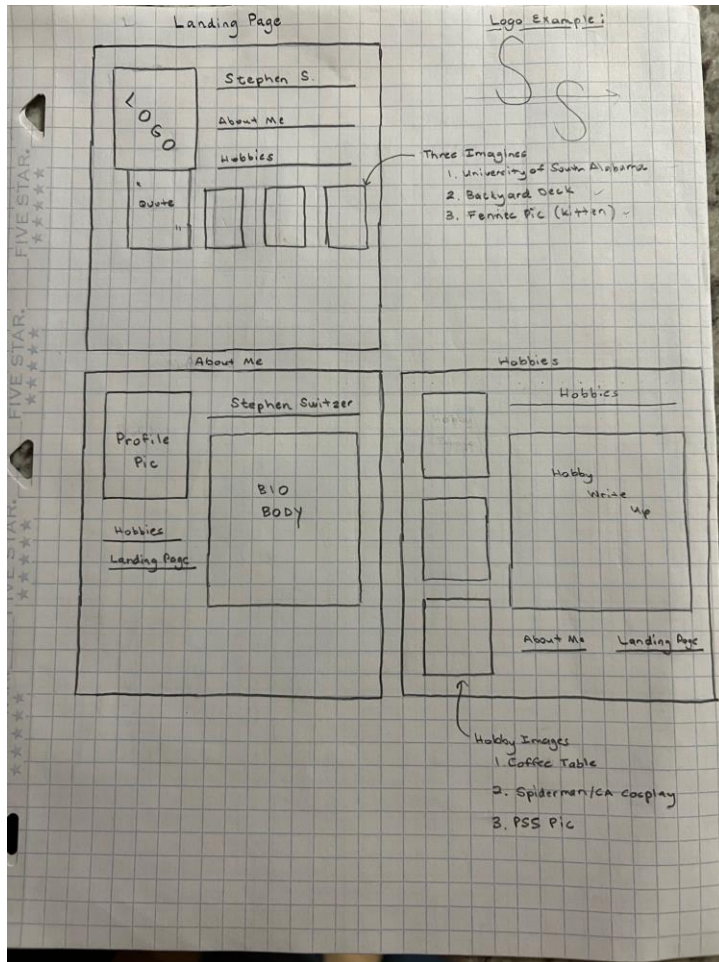 Landing Page
Logo Example:
S
S
LOGO
Stephen S.
About Me
Hobbies
"Quote"
Three Imagines
1. University of South Alabama
2. Backyard Deck
3. Fennec Pic (kitten)
About Me
Profile
Pic
Stephen Switzer
BIO
BODY
Hobbies
Landing Page
Hobbies
Hobbies
Hobby
Write
Up
About Me Landing Page
Hobby Images
1. Coffee Table
2. Spiderman/CA Cosplay
3. PS5 Pic
FIVE STAR.
FIVE STAR.
FIVE STAR.